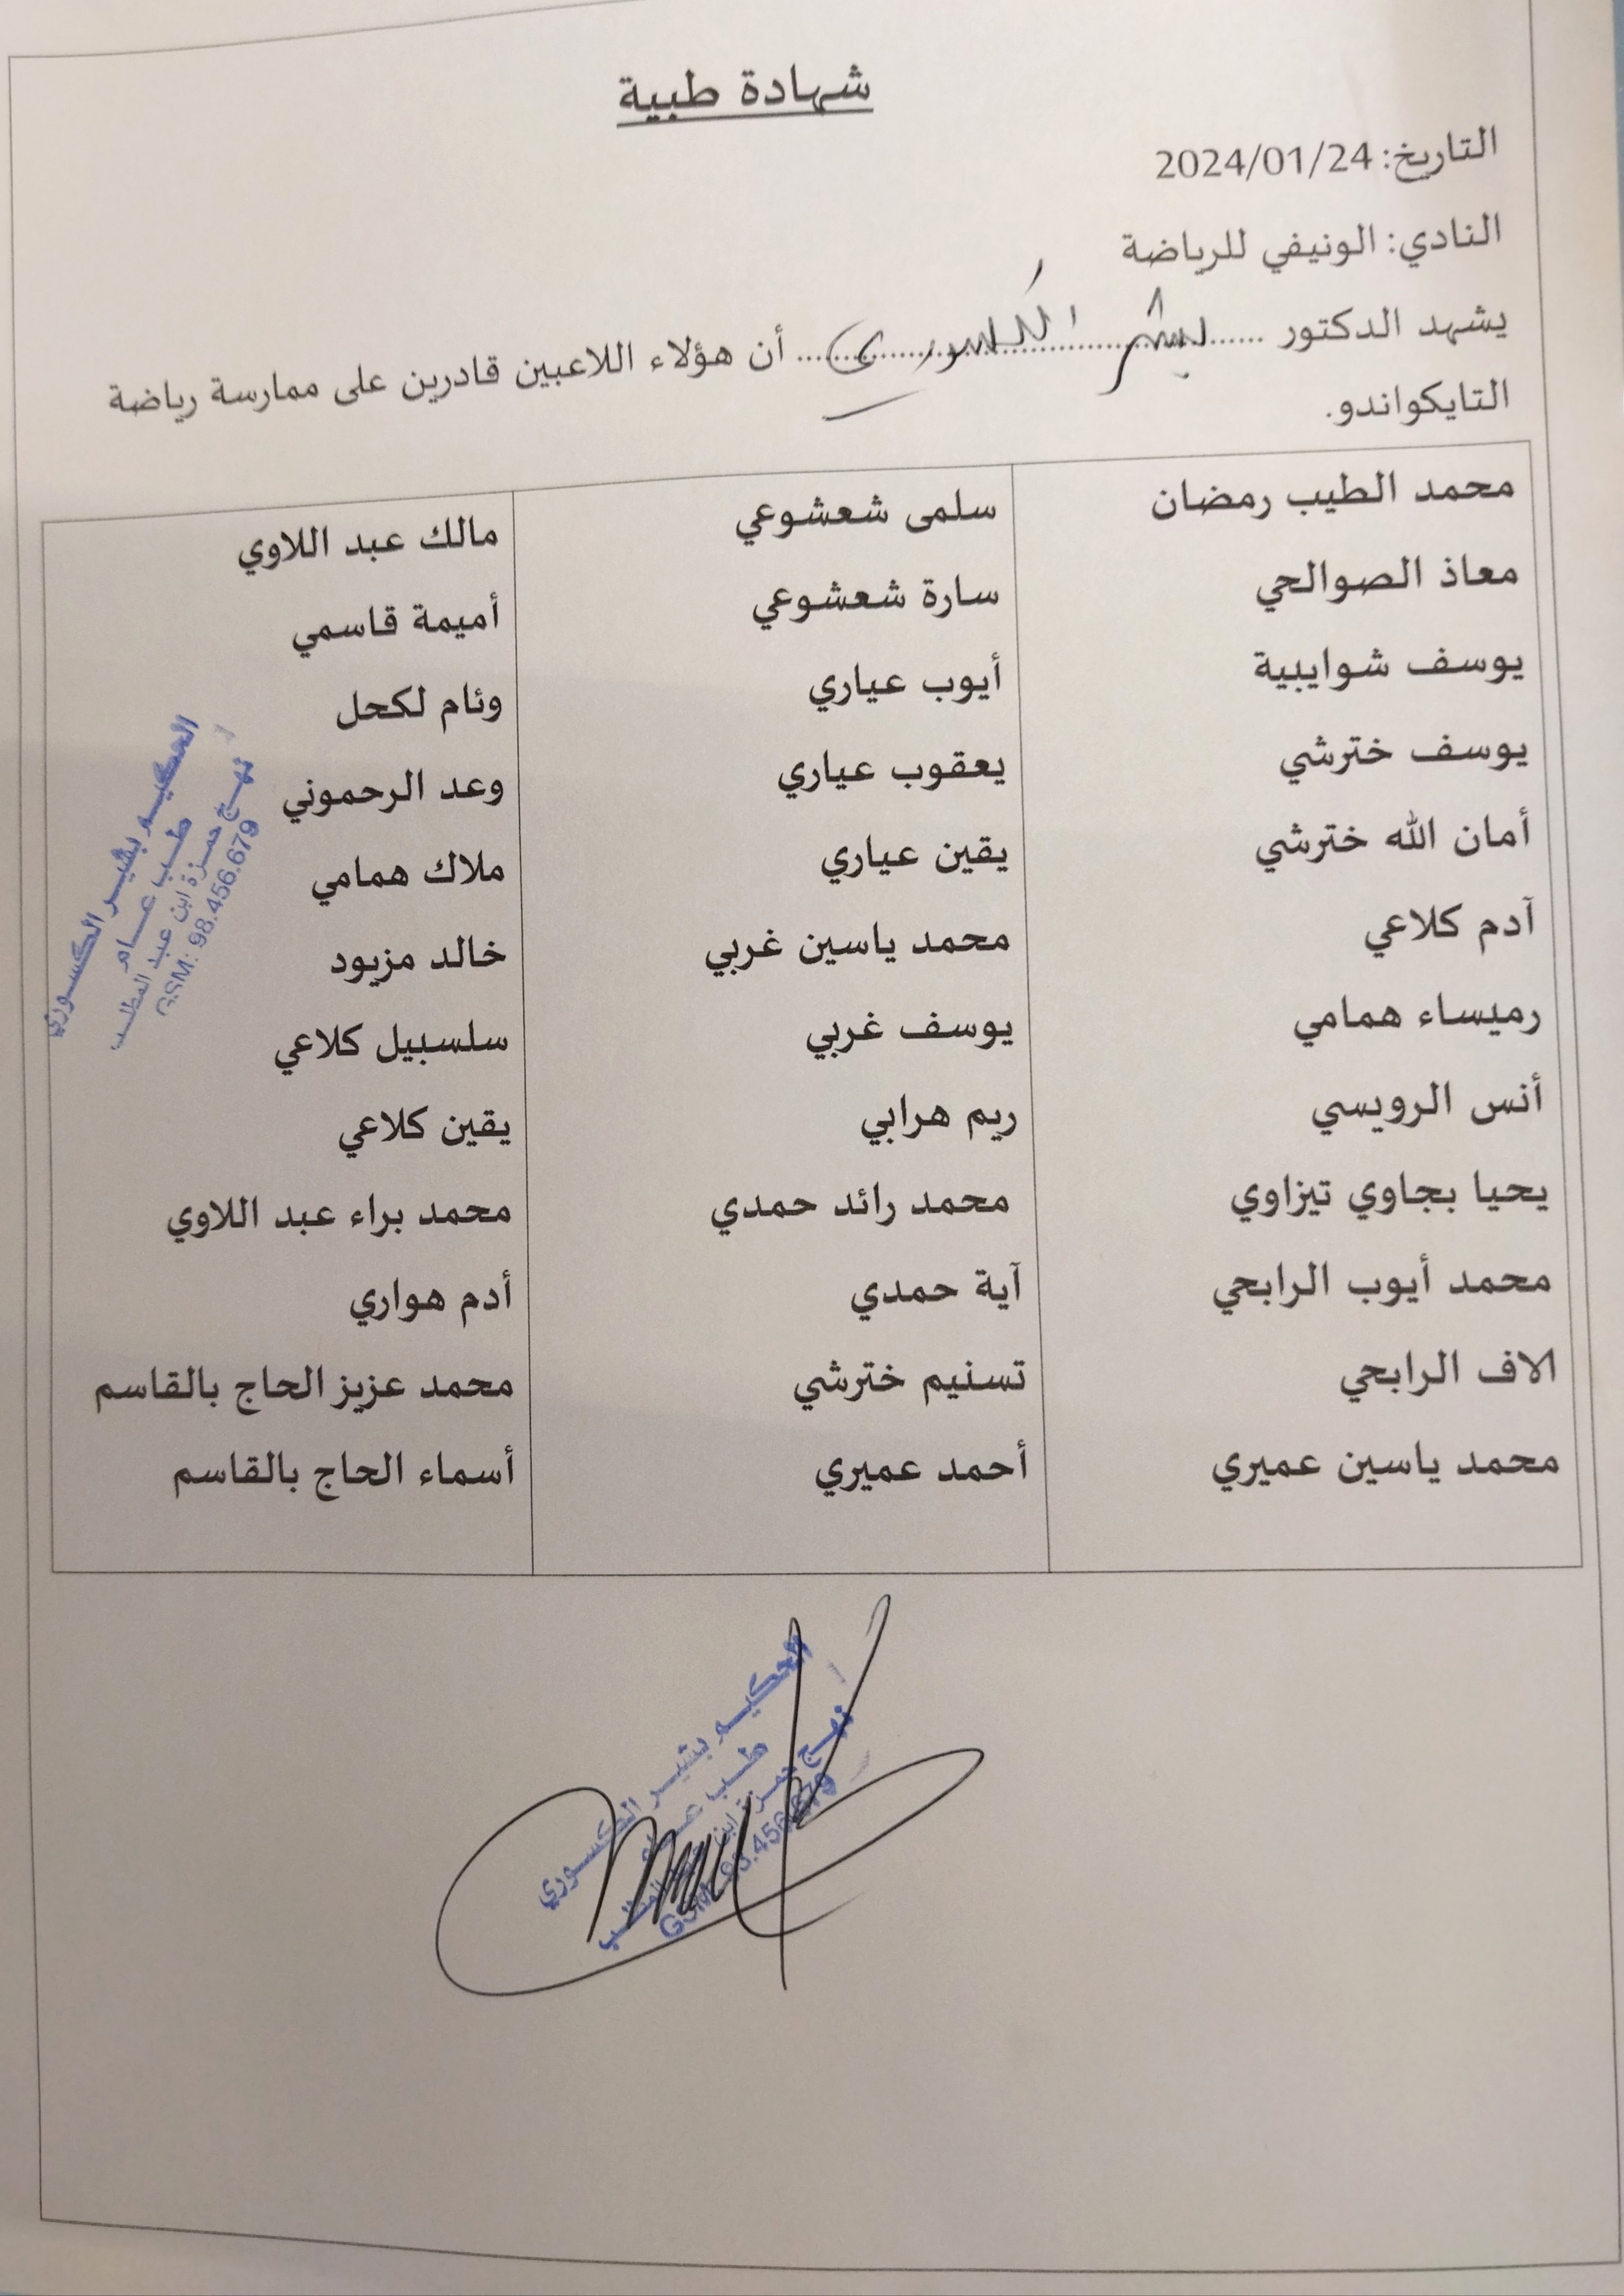 شهادة طبية
التاريخ: 2024/01/24
النادي: الونيفي للرياضة
يشهد الدكتور بشير الكسوري أن هؤلاء اللاعبين قادرين على ممارسة رياضة
التايكواندو.
محمد الطيب رمضان
معاذ الصوالحي
يوسف شوايبية
يوسف خترشي
أمان الله خترشي
آدم كلاعي
رميساء همامي
أنس الرويسي
يحيا بجاوي تيزاوي
محمد أيوب الرابحي
الاف الرابحي
محمد ياسين عميري
سلمى شعشوعي
سارة شعشوعي
أيوب عياري
يعقوب عياري
يقين عياري
محمد ياسين غربي
يوسف غربي
ريم هرابي
محمد رائد حمدي
آية حمدي
تسنيم خترشي
أحمد عميري
مالك عبد اللاوي
أميمة قاسمي
وئام لكحل
وعد الرحموني
ملاك همامي
خالد مزيود
سلسبيل كلاعي
يقين كلاعي
محمد براء عبد اللاوي
أدم هواري
محمد عزيز الحاج بالقاسم
أسماء الحاج بالقاسم
الحكيم بشير الكسوري
طب عام
نهج حمزة ابن عبد المطلب
GSM: 98.456.679
الحكيم بشير الكسوري
طب عام
نهج حمزة ابن عبد المطلب
GSM: 98.456.679